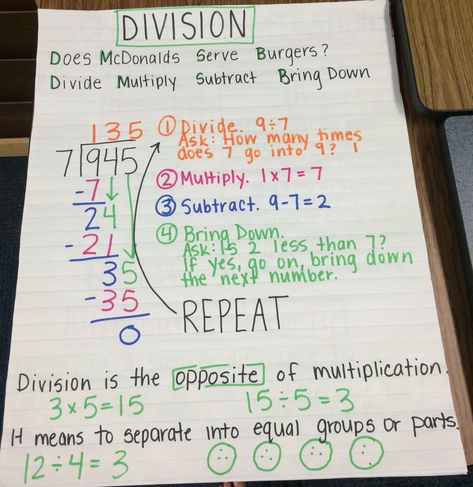 DIVISION
Does McDonalds Serve Burgers?
Divide Multiply Subtract Bring Down
135
7 945
-7
24
-21
35
-35
0
① Divide. 9÷7
Ask: How many times
does 7 go into 9? 1
② Multiply. 1x7=7
③ Subtract. 9-7=2
④ Bring Down.
Ask: Is 2 less than 7?
If yes, go on, bring down
the next number.
REPEAT
Division is the opposite of multiplication.
3×5=15 15÷5=3
It means to separate into equal groups or parts.
12÷4=3